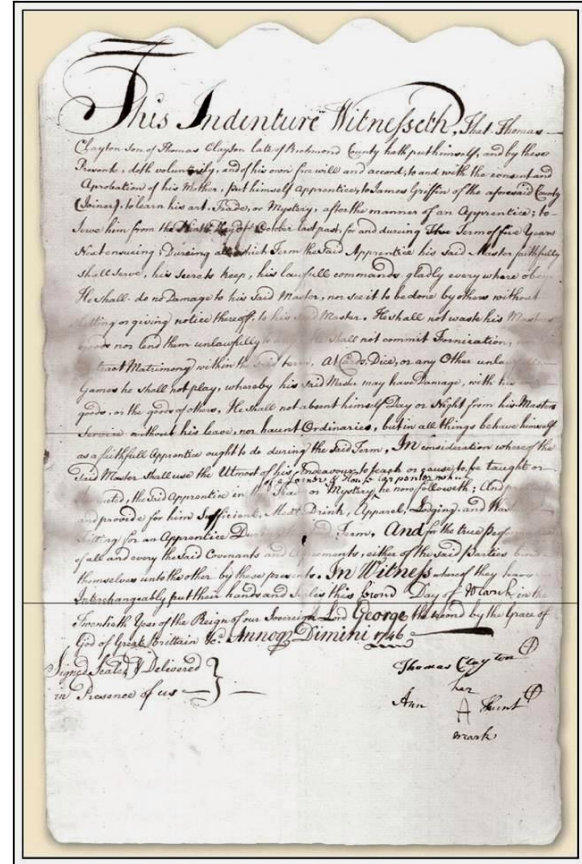 This Indenture Witnesseth, That Thomas
Clayton Son of Thomas Clayton late of Richmond County hath put himself, and by these
Presents, doth voluntarily, and of his own free will and accord, to and with the consent and
Aprobation of his Mother, put himself Apprentice, to James Griffin of the aforesaid County
(Joiner), to learn his art, Trade, or Mystery, after the manner of an Apprentice; to
Serve him from the Day of October last past, for and during The Term of five Years
Next ensuing; During all which Term the said Apprentice his Said Master faithfully
shall Serve, his secrets keep, his lawfull commands, gladly every where obey
He shall do no Damage to his Said Master, nor see it to be done by others without
letting or giving notice thereof, to his Said Master. He shall not wast his Masters
goods nor lend them unlawfully to He shall not commit Fornication,
Contract Matrimony within the Said term, At Cards, Dice, or any Other unlawfull
Games he shall not play, whereby his Said Master may have Damage, with his
goods, or the goods of others, He shall not absent himself Day or Night from his Masters
Service without his leave, nor haunt Ordinaries, but in all things behave himself
as a faithfull Apprentice ought to do during the Said Term, In consideration whereof the
Said Master shall use the Utmost of his Endeavour to teach or cause to be taught or
of a Joiner & House carpenter
the Said Apprentice in Trade or Mystery he now followeth; And
and provide for him Sufficient Meat, Drink, Apparel, Lodging, and
fitting for an Apprentice During Term. And for the true
of all and every the Said Covenants and Agreements, either of the Said Parties bind
themselves unto the other by these presents. In Witness whereof they have
Interchangeably put their hands and Seales this Day of March in the
Twentieth Year of the Reign of our Sovereign Lord George the second by the Grace of
God of Great Brittain &c. Annoq Dimini 1746
Signed Sealed & Delivered
in Presence of us
Thomas Clayton
her
Ann A Hunt
mark